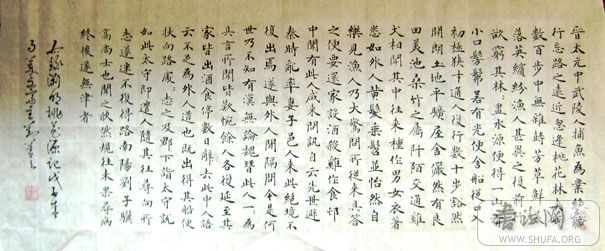 晋太元中武陵人捕魚為業緣
行忘路之遠近忽逢桃花林
數百步中無雜樹芳草鮮
落英繽紛漁人甚異之復前
欲窮其林盡水源便得一山
小口髣髴若有光便舍船從口入
初極狹才通人復行數十步豁然
開朗土地平曠屋舍儼然有良
田美池桑竹之屬阡陌交通雞
犬相聞其中往來種作男女衣著
悉如外人黃髮垂髫並怡然自
樂見漁人乃大驚問所從來具答
之便要還家設酒殺雞作食邨
中聞有此人咸來問訊自云先世避
秦時亂率妻子邑人來此絕境不
復出焉遂與外人間隔問今是何
世乃不知有漢無論魏晉此人一一為
具言所聞皆歎惋餘人各復延至其
家皆出酒食停數日辭去此中人語
云不足為外人道也既出得其船便
扶向路處處志之及郡下詣太守說
如此太守即遣人隨其往尋向所
志遂迷不復得路南陽劉子驥
高尚士也聞之欣然規往未果尋病
終後遂無津者
右錄淵明桃花源記戊子年
書法网
WWW.SHUFA.ORG